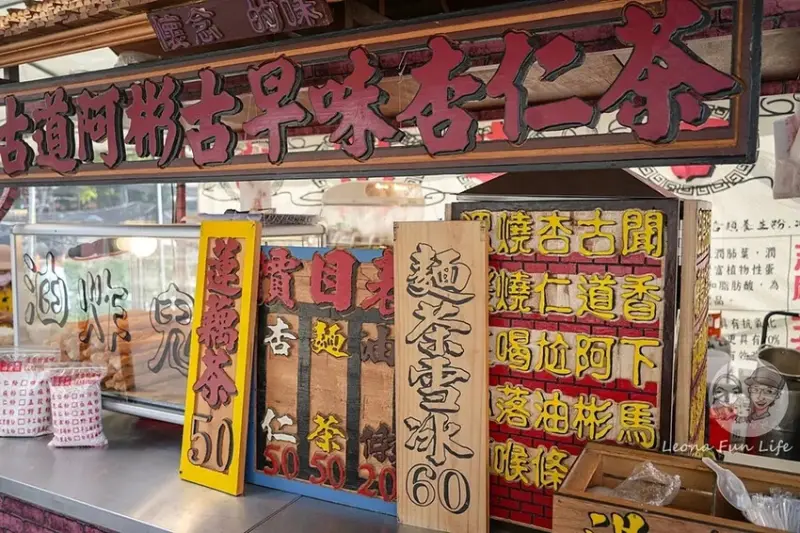 懷念的味
古道阿彬古早味杏仁茶
油炸鬼
蓮藕茶 50
價目表
杏仁 50
麵茶 50
油條 20
麵茶雪冰 60
聞香下馬
古道阿彬
杏仁尬油條
燒燒喝落喉
養生粉
富植物性蛋
和脂肪酸，為
品
Leona Fun Life